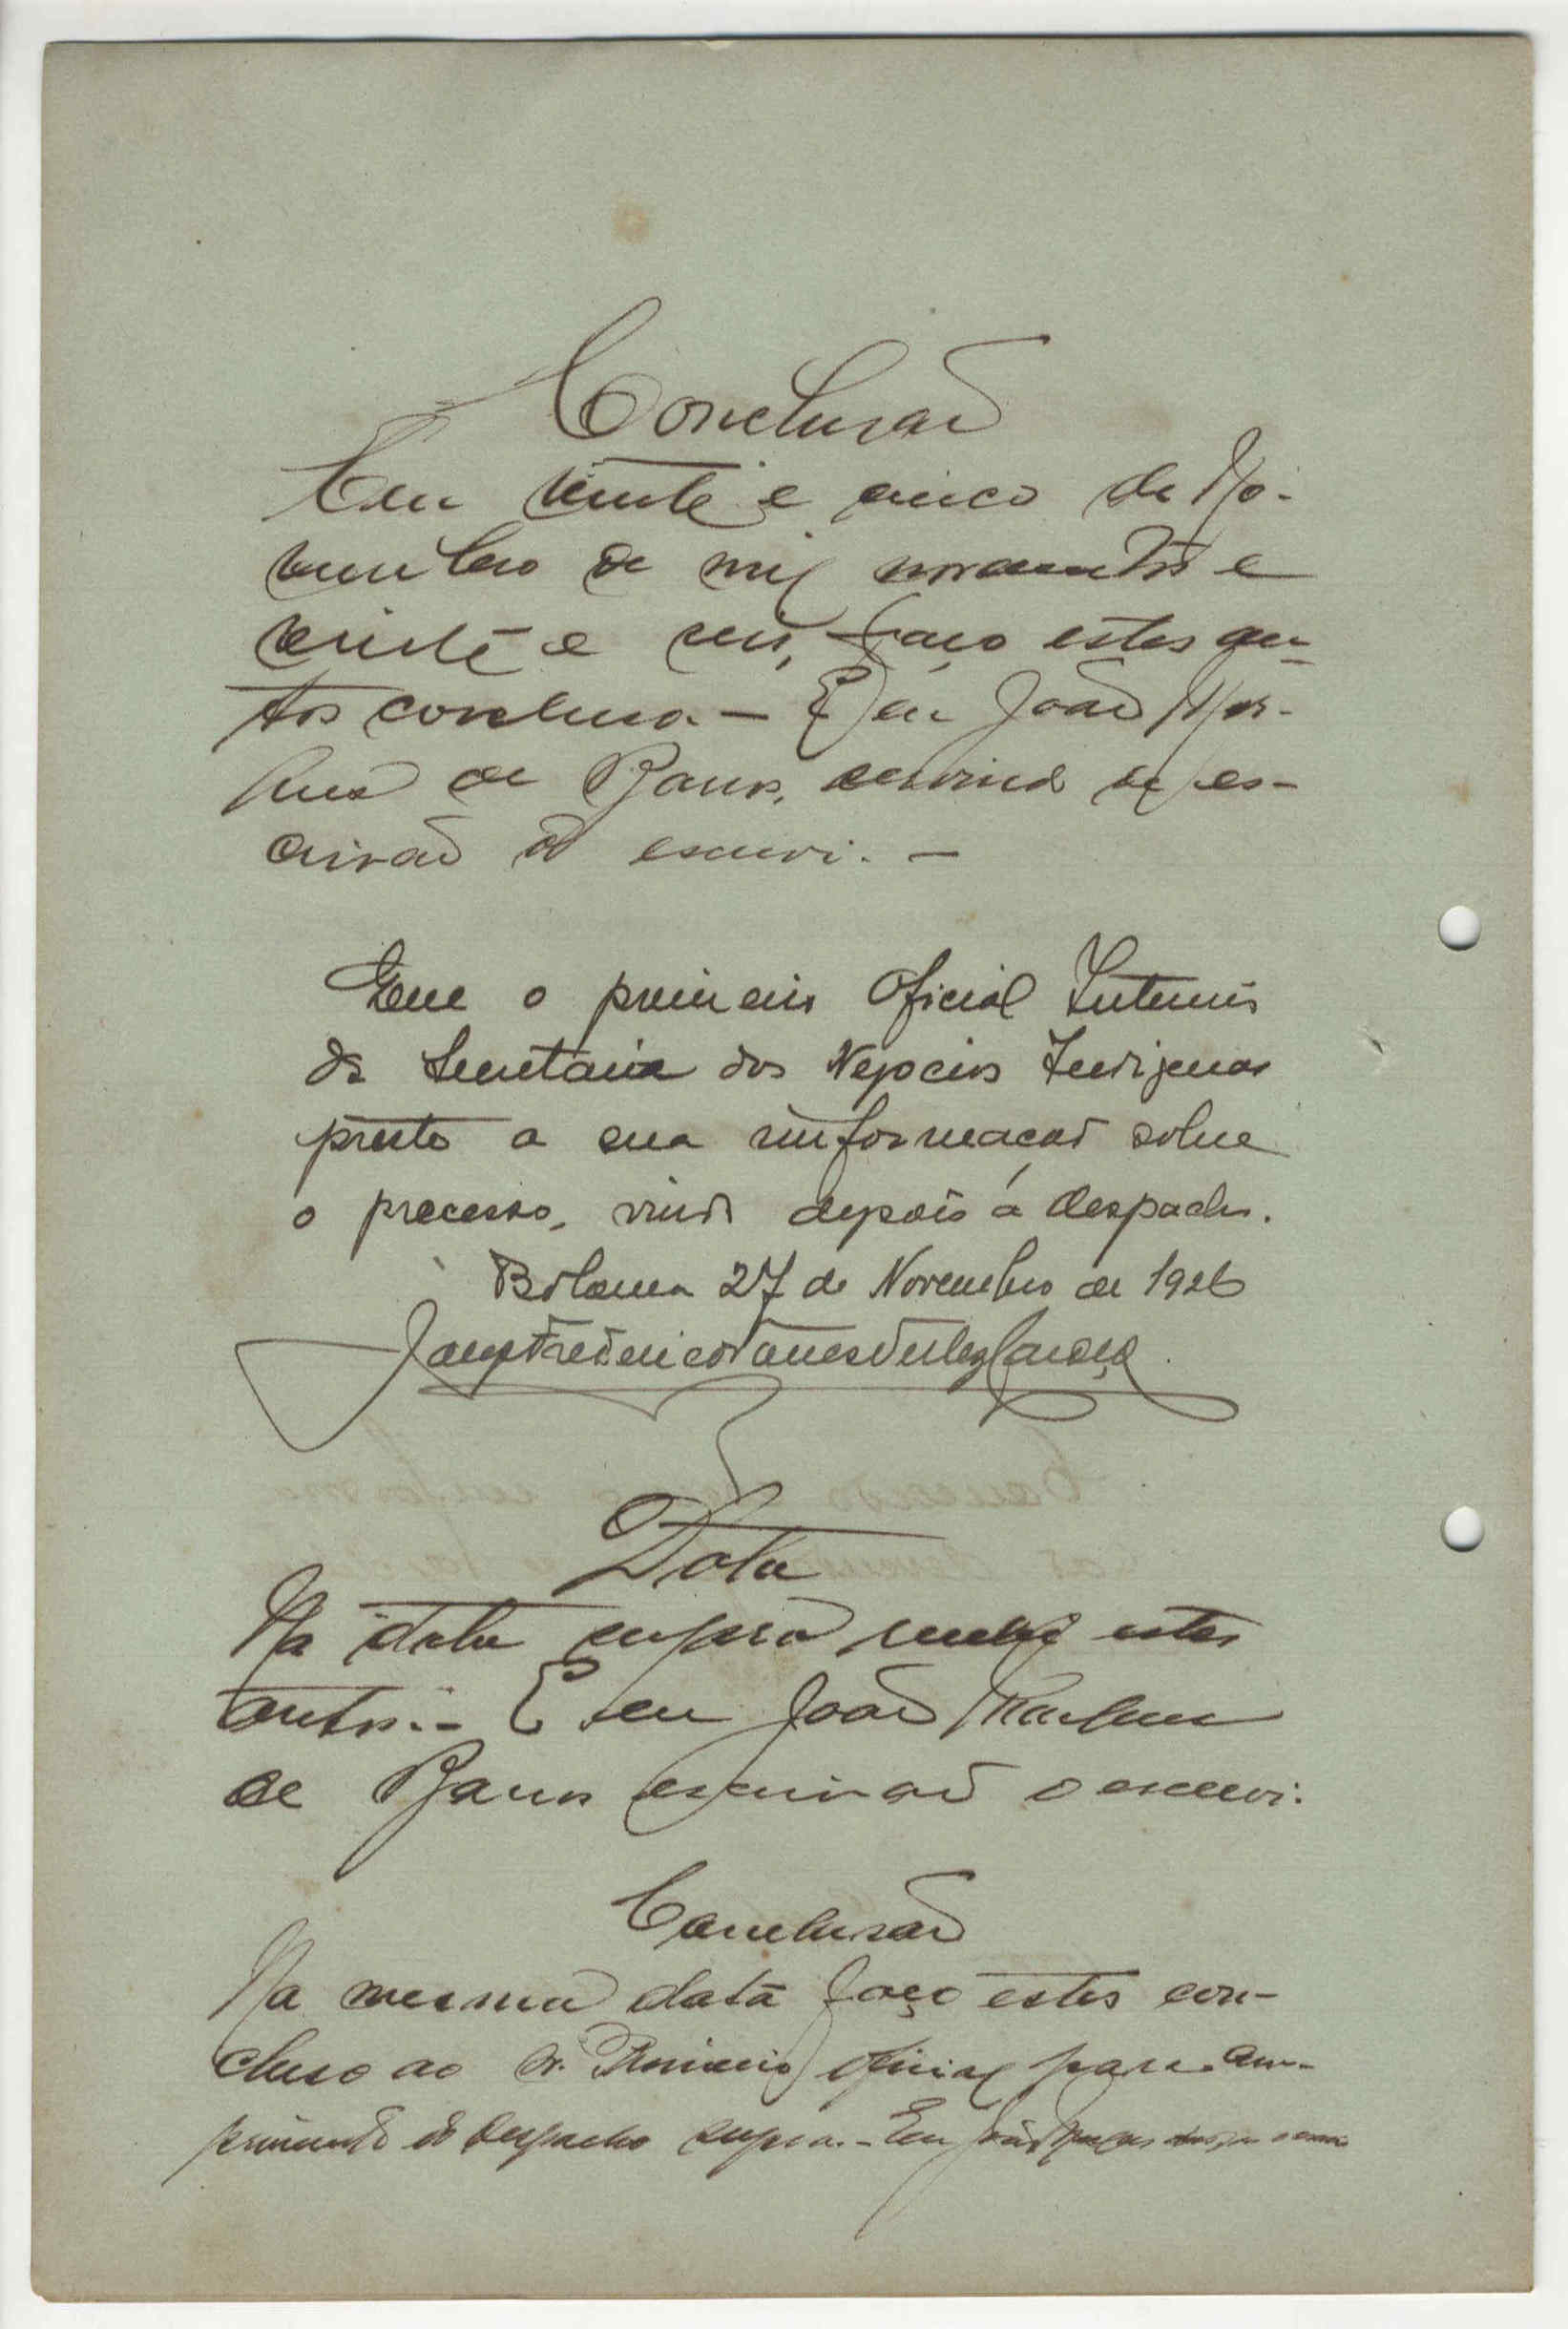 Conclusão
Em vinte e cinco de No-
vembro de mil novecentos e
vinte e seis, faço estes au-
tos concluso. — E eu João
de Barros, servindo de es-
crivão o escrevi. —
Que o primeiro Oficial Interino
da Secretaria dos Negocios Indigenas
preste a sua informação sobre
o processo, vindo depois á despacho.
Bolama 27 de Novembro de 1926
Data
Na data supra recebi estes
autos. - E eu João
de Barros escrivão o escrevi.
Conclusão
Na mesma data faço estes con-
cluso ao Sr. Primeiro oficial para cum-
primento do despacho supra. - Eu João